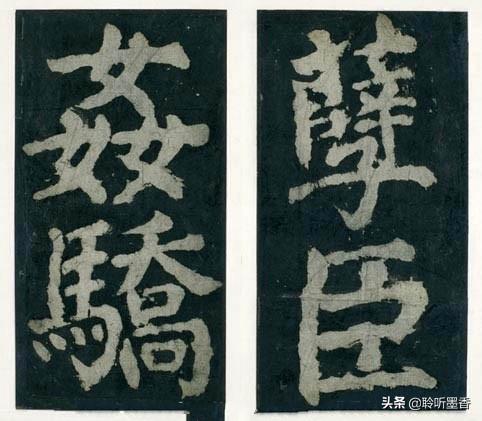 孽臣
姦驕
头条 @聆听墨香